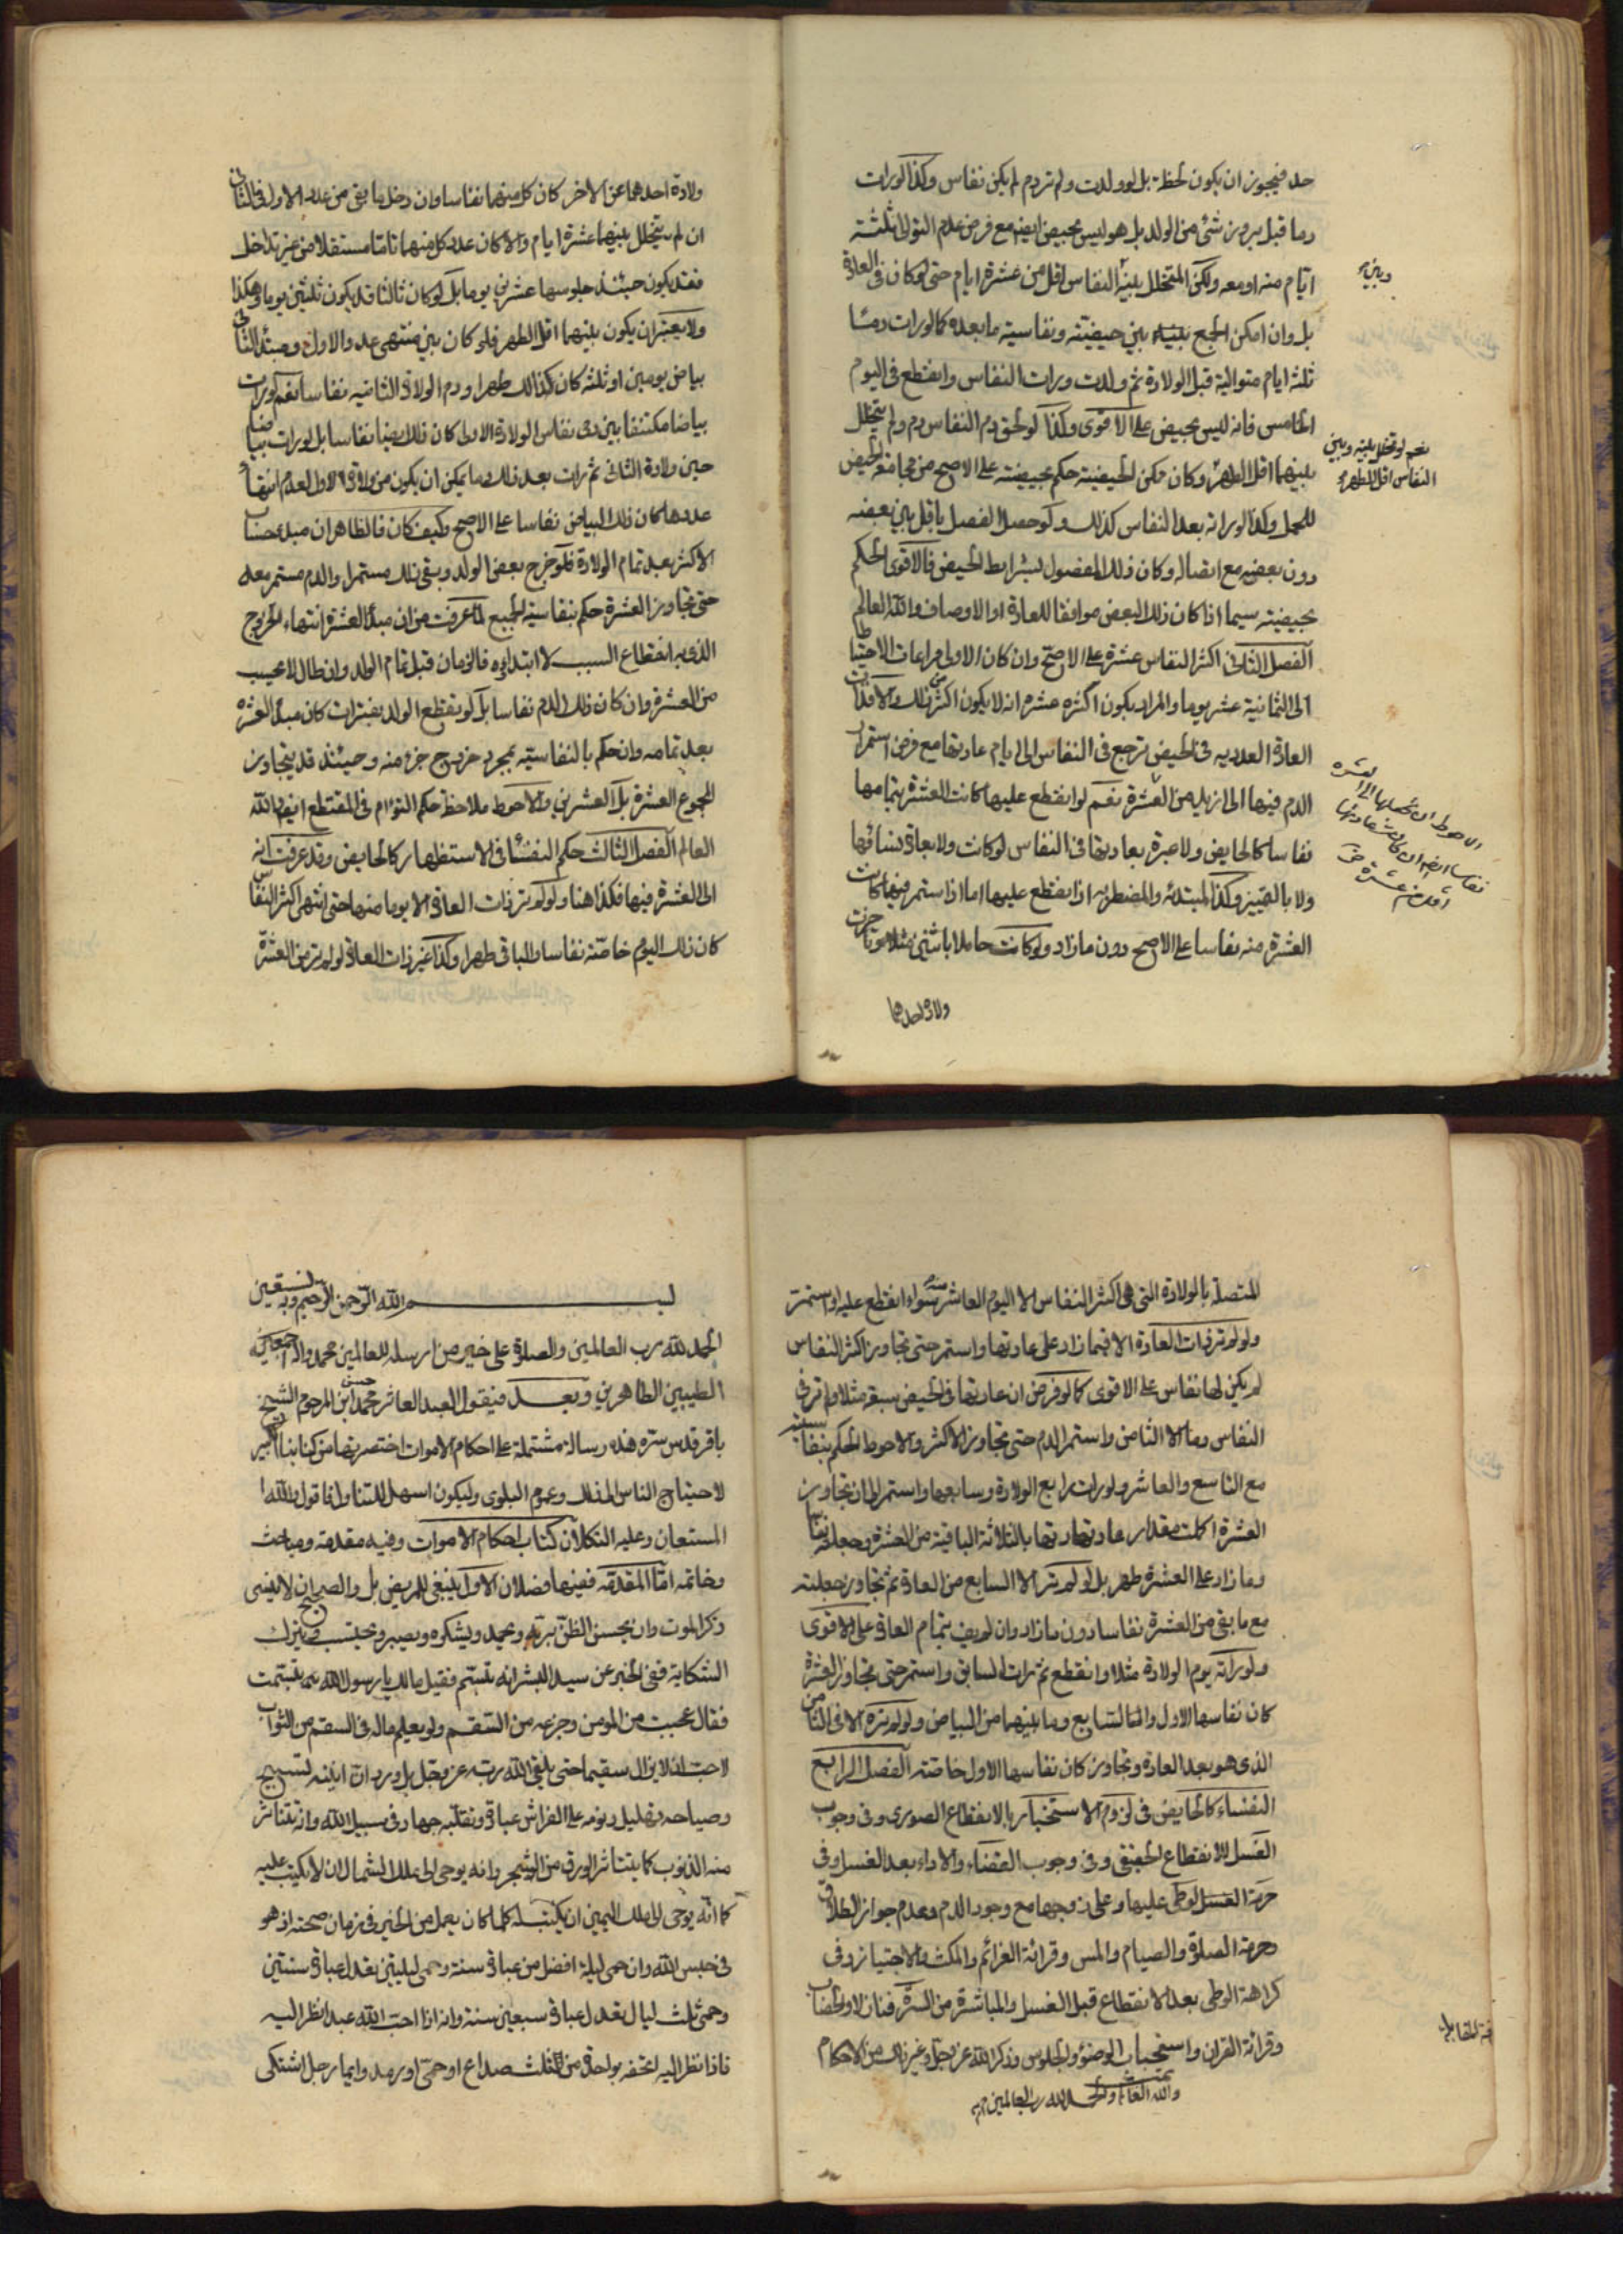 حد فيجوز ان يكون لحظة بل لو ولدت ولم تر دم لم يكن نفاس وكذا لو رات
دما قبل بروز شئ من الولد بل هو ليس بحيض ايضا مع فرض عدم التوالى ثلثة
ايّام منه او معه ولكن المتخلل بينه النفاس اقل من عشرة ايام حتى لو كان فى العادة
وبين
بل وان امكن الجمع بينه بين حيضيّته ونفاسية ما بعده كما لو رات دما
ثلثه ايام متوالية قبل الولادة ثم ولدت ورات النفاس وانقطع فى اليوم
الخامس فانه ليس بحيض على الاقوى وكذا لو لحق دم النفاس دم ولم يتخلل
نعم لو تخلل بينه وبين
النفاس اقل الطهر
بينهما اقل الطهر وكان ممكن الحيضيّة حكم بحيضيته على الاصح من مجامعة الحيض
للحمل وكذا لو راته بعد النفاس كذلك ولو حصل الفصل باقل بين بعضه
دون بعضه مع اتصاله وكان ذلك المفصول بشرايط الحيض فالاقوى الحكم
بحيضيته سيما اذا كان ذلك البعض موافقا للعادة او الاوصاف والله العالم
الفصل الثانى اكثر النفاس عشرة على الاصح وان كان الاولى مراعات الاحتياط
الى الثمانية عشر يوما والمراد بكون اكثره عشره انه لا يكون اكثر من ذلك والا فذات
العادة العدديه فى الحيض ترجع فى النفاس الى ايام عادتها مع فرض استمرار
الدم فيها الى ازيد من العشرة نعم لو انقطع عليها كانت العشرة بتمامها
الاحوط ان تجعلها الى العشره
نفاسا ايضا ان كان عادتها
اقل من عشرة
نفاسا كالحايض ولا عبرة بعادتها فى النفاس لو كانت ولا بعادة نسائها
ولا بالتميز وكذا المبتدئه والمضطربه اذا ينقطع عليها اما اذا استمر فيها كانت
العشرة منه نفاسا على الاصح دون ما زاد ولو كانت حاملا باثنين مثلا وتاخرت
ولادة احدهما
ولادة احدهما عن الاخر كان كل منهما نفاسا وان دخل ما بقى من عدد الاول فى الثانى
ان لم يتخلل بينهما عشرة ايام والا كان عدد كل منهما تاما مستقلا من غير تداخل
فقد يكون حينئذ جلوسها عشرين يوما بل لو كان ثالثا قد يكون ثلثين يوما وهكذا
ولا يعتبر ان يكون بينهما اقل الطهر فلو كان بين منتهى عدد الاول ومبتدء الثانى
بياض يومين او ثلثه كان كذالك طهرا ودم الولادة الثانيه نفاسا نعم لو رات
بياضا مكتنفا بين دمى نفاس الولادة الاولى كان ذلك ايضا نفاسا بل لو رات بياضا
حين ولادة الثانى ثم رات بعد ذلك دما يمكن ان يكون من ولادة الاول لعدم انتهاء
عددها كان ذلك البياض نفاسا على الاصح وكيف كان فالظاهر ان مبدء حساب
الاكثر بعد تمام الولادة فلو خرج بعض الولد وبقى ذلك مستمرا والدم مستمر معه
حتى تجاوز العشرة حكم بنفاسية الجميع لما عرفت من ان مبدأ العشرة انتهاء الخروج
الذى به انقطاع السبب لا ابتداؤه فالزمان قبل تمام الولد وان طال لا يحسب
من العشرة وان كان ذلك الدم نفاسا بل لو تقطع الولد بفترات كان مبدأ العشره
بعد تمامه وان حكم بالنفاسيته بمجرد خروج جزء منه وحينئذ قد يتجاوز
المجموع العشرة بل العشرين والاحوط ملاحظة حكم التوام فى المقتطع ايضا والله
العالم الفصل الثالث حكم النفساء فى الاستظهار كالحايض وقد عرفت انه
الى العشرة فيها فكذا هنا ولو لم تر ذات العادة الا يوما منها حتى انتهى اكثر النفاس
كان ذلك اليوم خاصّة نفاسا والباقى طهرا وكذا غير ذات العادة لو لم تر من العشرة
المتصلة بالولادة التى هى اكثر النفاس الا اليوم العاشر سواء انقطع عليه او استمر
ولو لم تر ذات العادة الا فيما زاد على عادتها واستمر حتى تجاوز اكثر النفاس
لم يكن لها نفاس على الاقوى كما لو فرض ان عادتها فى الحيض سبعة مثلا ولم تر فى
النفاس دما الا الثامن واستمر الدم حتى تجاوز الاكثر والاحوط الحكم بنفاسيته
مع التاسع والعاشر ولو رات رابع الولادة وسابعها واستمر الى ان تجاوز
العشرة اكملت مقدار عادتها بالثلاثة الباقية من العشرة وجعلته نفاسا
وما زاد على العشرة طهر بل لو لم تر الا السابع من العادة ثم تجاوز جعلته
مع ما بقى من العشرة نفاسا دون ما زاد وان لم يف بتمام العادة على الاقوى
ولو راته يوم الولادة مثلا وانقطع ثم رات السابع واستمر حتى تجاوز العشرة
كان نفاسها الاول والسابع وما بينهما من البياض ولو لم تره الا فى الثامن
الذى هو بعد العادة وتجاوز كان نفاسها الاول خاصّة الفصل الرابع
النفساء كالحايض فى لزوم الاستخبار بالانقطاع الصورى وفى وجوب
الغسل للانقطاع الحقيقى وفى وجوب القضاء والاداء بعد الغسل وفى
حرمة الوطى عليها وعلى زوجها مع وجود الدم وعدم جواز الطلاق
وحرمة الصلوة والصيام والمس وقرائة العزائم والمكث والاجتياز وفى
كراهة الوطى بعد الانقطاع قبل الغسل والمباشرة من السرّة فنازلا والخضاب
وقرائة القران واستحباب الوضوء والجلوس وذكر الله عز وجل وغير ذلك من الاحكام
والله العالم والحمد لله رب العالمين تمت
بسم الله الرحمن الرحيم وبه نستعين
الحمد لله رب العالمين والصلوة على خير من ارسله للعالمين محمد واله اجمعين
الطيبين الطاهرين وبعد فيقول العبد العاثر محمد حسن ابن المرحوم الشيخ
باقر قدس سره هذه رسالة مشتملة على احكام الاموات اختصرتها من كتابنا الكبير
لاحتياج الناس الى ذلك وعموم البلوى وليكون اسهل للتناول فاقول والله
المستعان وعليه التكلان كتاب احكام الاموات وفيه مقدمة ومباحث
وخاتمه امّا المقدّمه ففيها فصلان الاول ينبغى للمريض بل والصحيح ان لا ينسى
ذكر الموت وان يحسن الظن بربّه ويحمده ويشكره ويصبر ويحتسب ويترك
الشكاية ففى الخبر عن سيد البشر انه تبسّم فقيل مالك يا رسول الله مم تبسّمت
فقال عجبت من المومن وجزعه من السّقم ولو يعلم ماله فى السقم من الثواب
لاحب ان لا يزال سقيما حتى يلقى الله ربّه عز وجل بل ورد ان انينه تسبيح
وصياحه تهليل ونومه على الفراش عبادة وتقلّبه جهاد فى سبيل الله وانه تتناثر
منه الذنوب كما يتناثر الورق من الشجر وانه يوحى الى ملك الشمال ان لا يكتب عليه
كما انّه يوحى الى ملك اليمين ان يكتب له كلما كان يعمل من الخير فى زمان صحته اذ هو
فى حبس الله وان حمى ليلة افضل من عبادة سنة وحمى ليلتين تعدل عبادة سنتين
وحمى ثلث ليال تعدل عبادة سبعين سنة وانه اذا احبّ الله عبدا نظر اليه
فاذا نظر اليه اتحفه بواحدة من ثلث صداع او حمى او رمد وايما رجل اشتكى